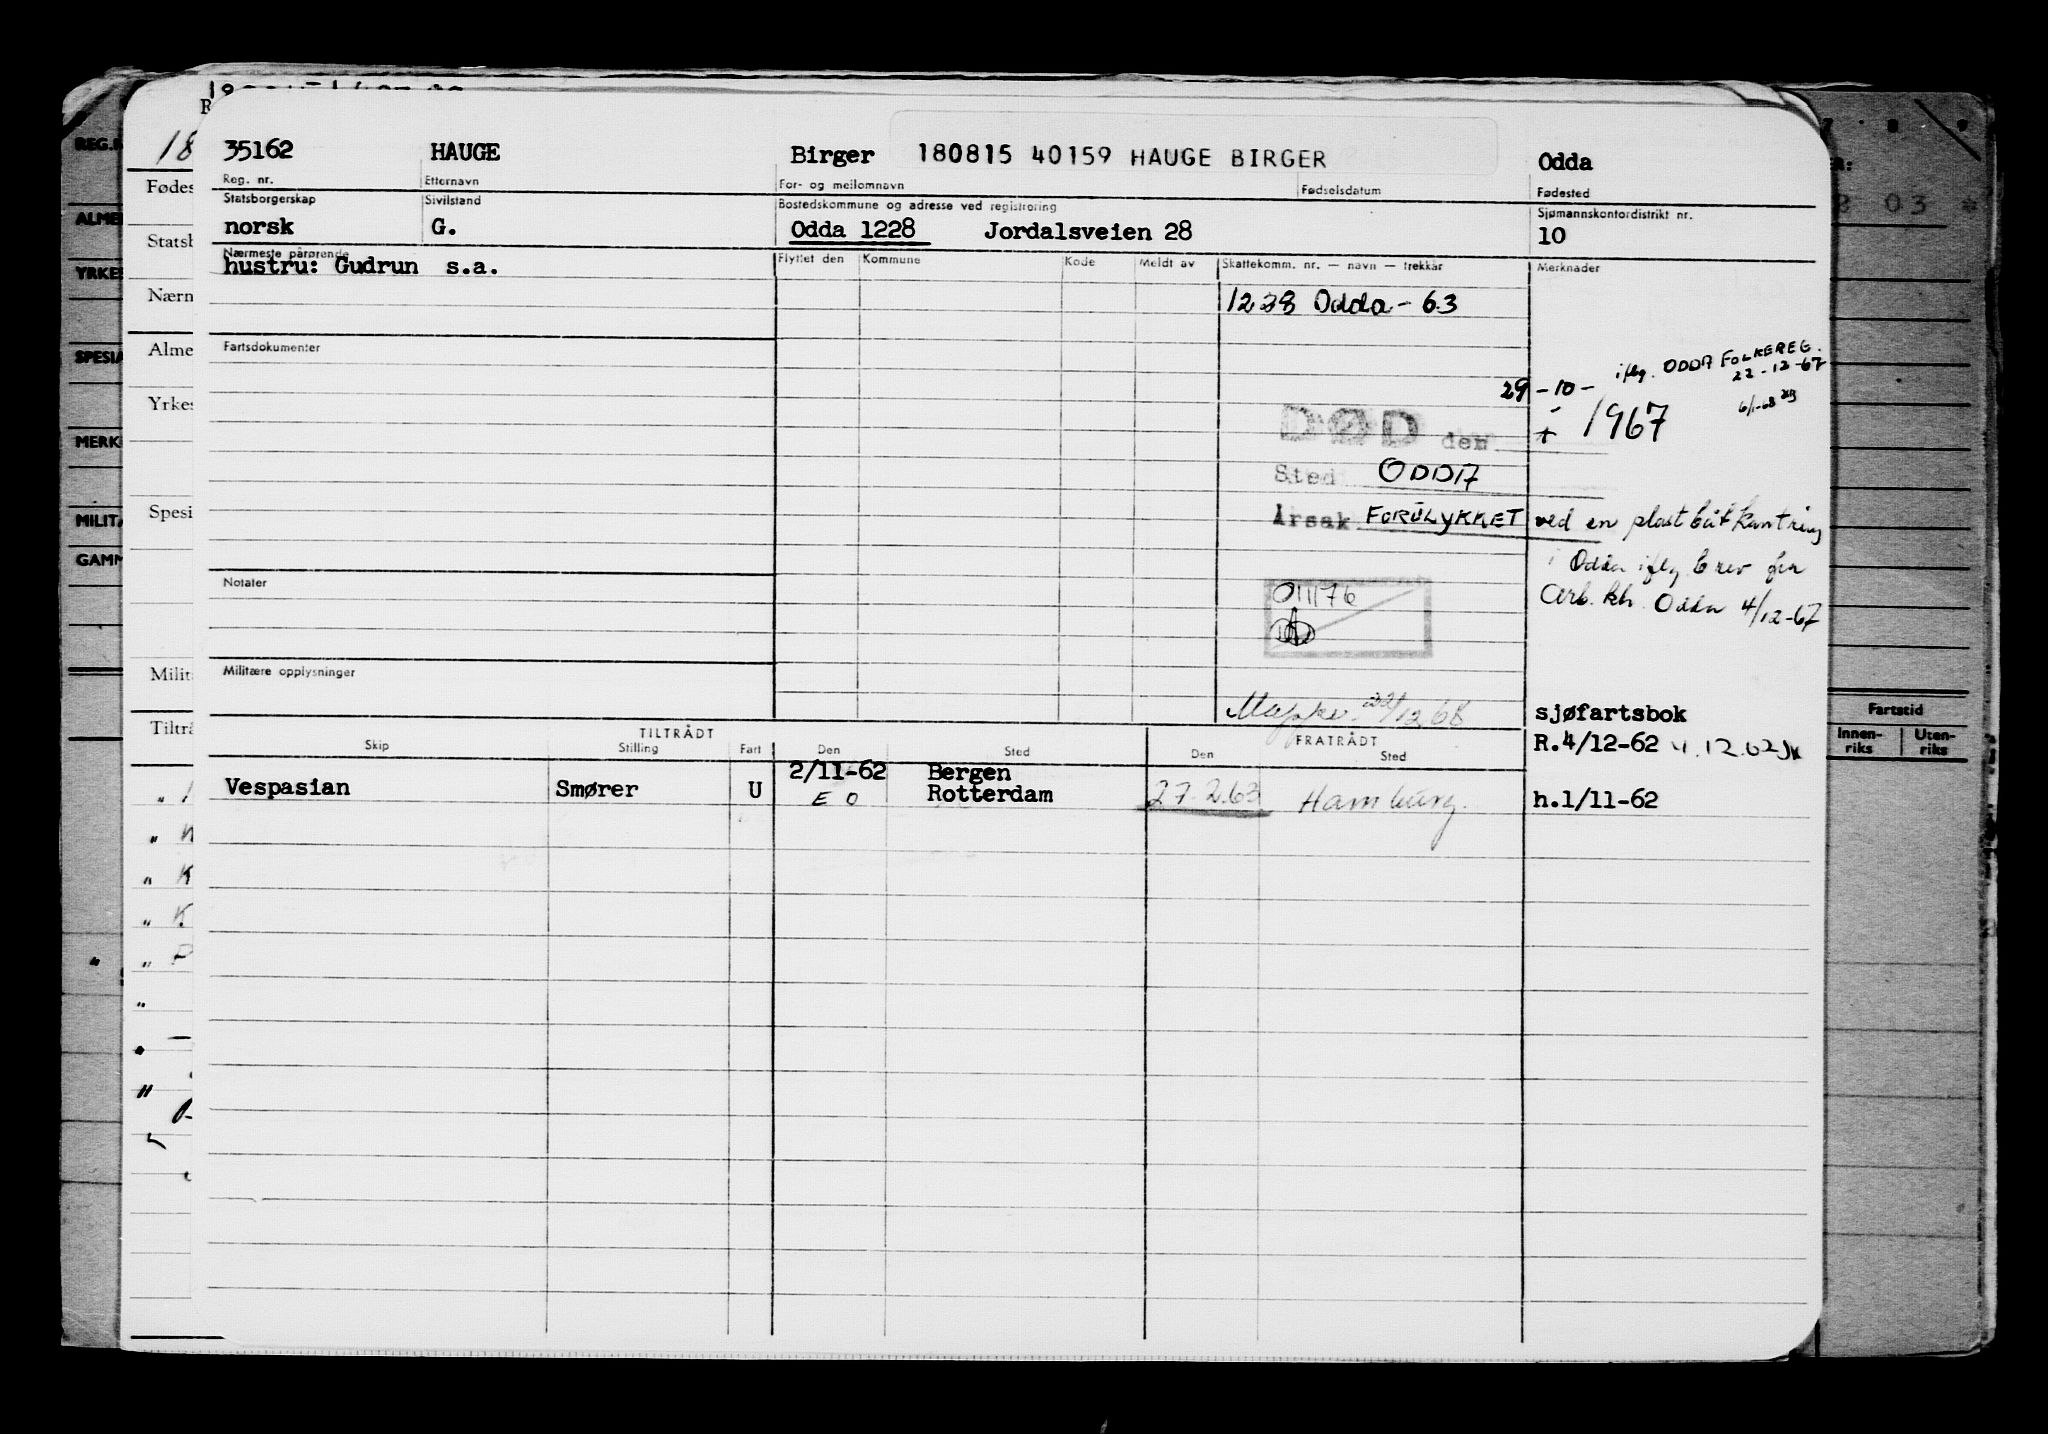 35162 HAUGE Birger 180815 40159 HAUGE BIRGER Odda
Reg. nr. Etternavn For- og mellomnavn Fødselsdatum Fødested
Statsborgerskap Sivilstand Bostedskommune og adresse ved registrering Sjømannskontordistrikt nr.
norsk G. Odda 1228 Jordalsveien 28 10
Nærmeste pårørende Flyttet den Kommune Kode Meldt av Skattekomm. nr. — navn — trekkår Merknader
hustru: Gudrun s.a.
1228 Odda - 63
Fartsdokumenter
iflg. ODDA FOLKEREG.
22-12-67
29 - 10 -
6/1-68
DØD den + 1967
Sted ODDA
Årsak FORULYKKET ved en plastbåtkantring
i Odda iflg brev fra
Arb. ktr. Odda 4/12-67
Notater
011176
Militære opplysninger
Mappe 22/12 68
sjøfartsbok
R.4/12-62 4.12.62
TILTRÅDT FRATRÅDT
Skip Stilling Fart Den Sted Den Sted
2/11-62 Bergen
Vespasian Smører U E O Rotterdam 27.2.63 Hamburg. h.1/11-62
REG.N
ALME
YRKES
SPESIA
MERK
MILIT
GAMM
18
Fødes
Statsb
Nærn
Alme
Yrkes
Spesi
Milit
Tiltrå
7 8 9
03 *
Fartstid
Innen-riks Uten-riks